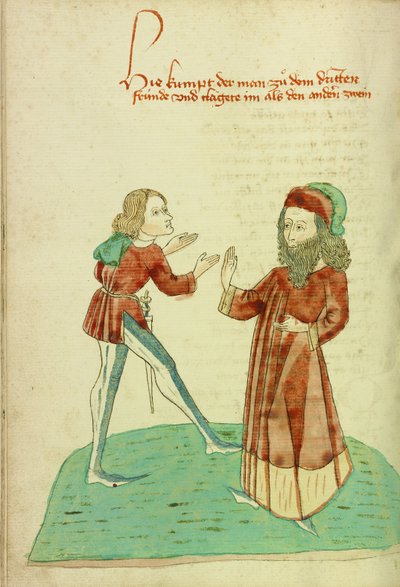 Hie kumpt der man zů dem dritten
fründe vnd clagete im als den andern zwein